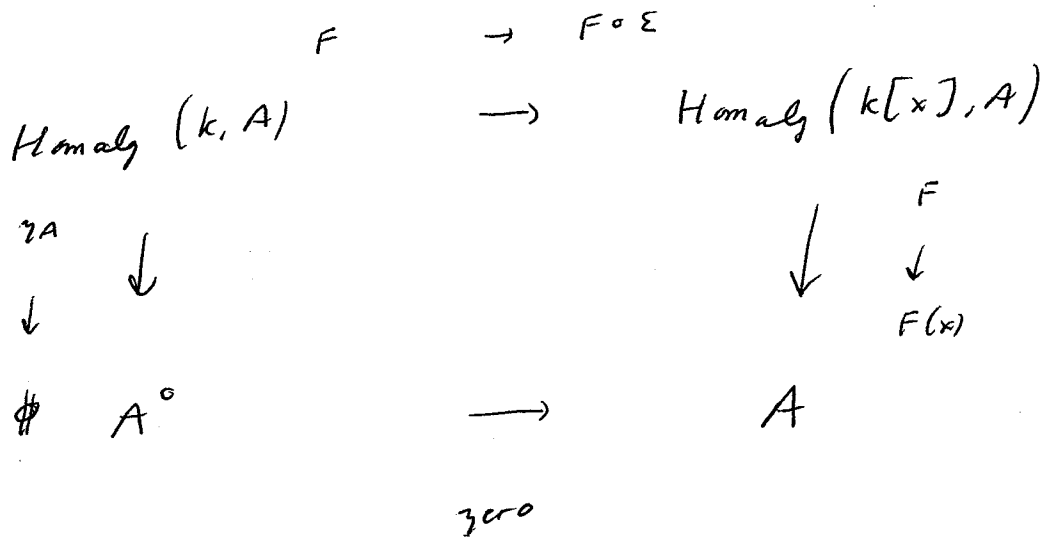 F → F ∘ Ɛ
Homalg (k, A) → Homalg (k[x], A)
ηA ↓ ↓ F
↓ ↓
F(x)
A° → A
zero